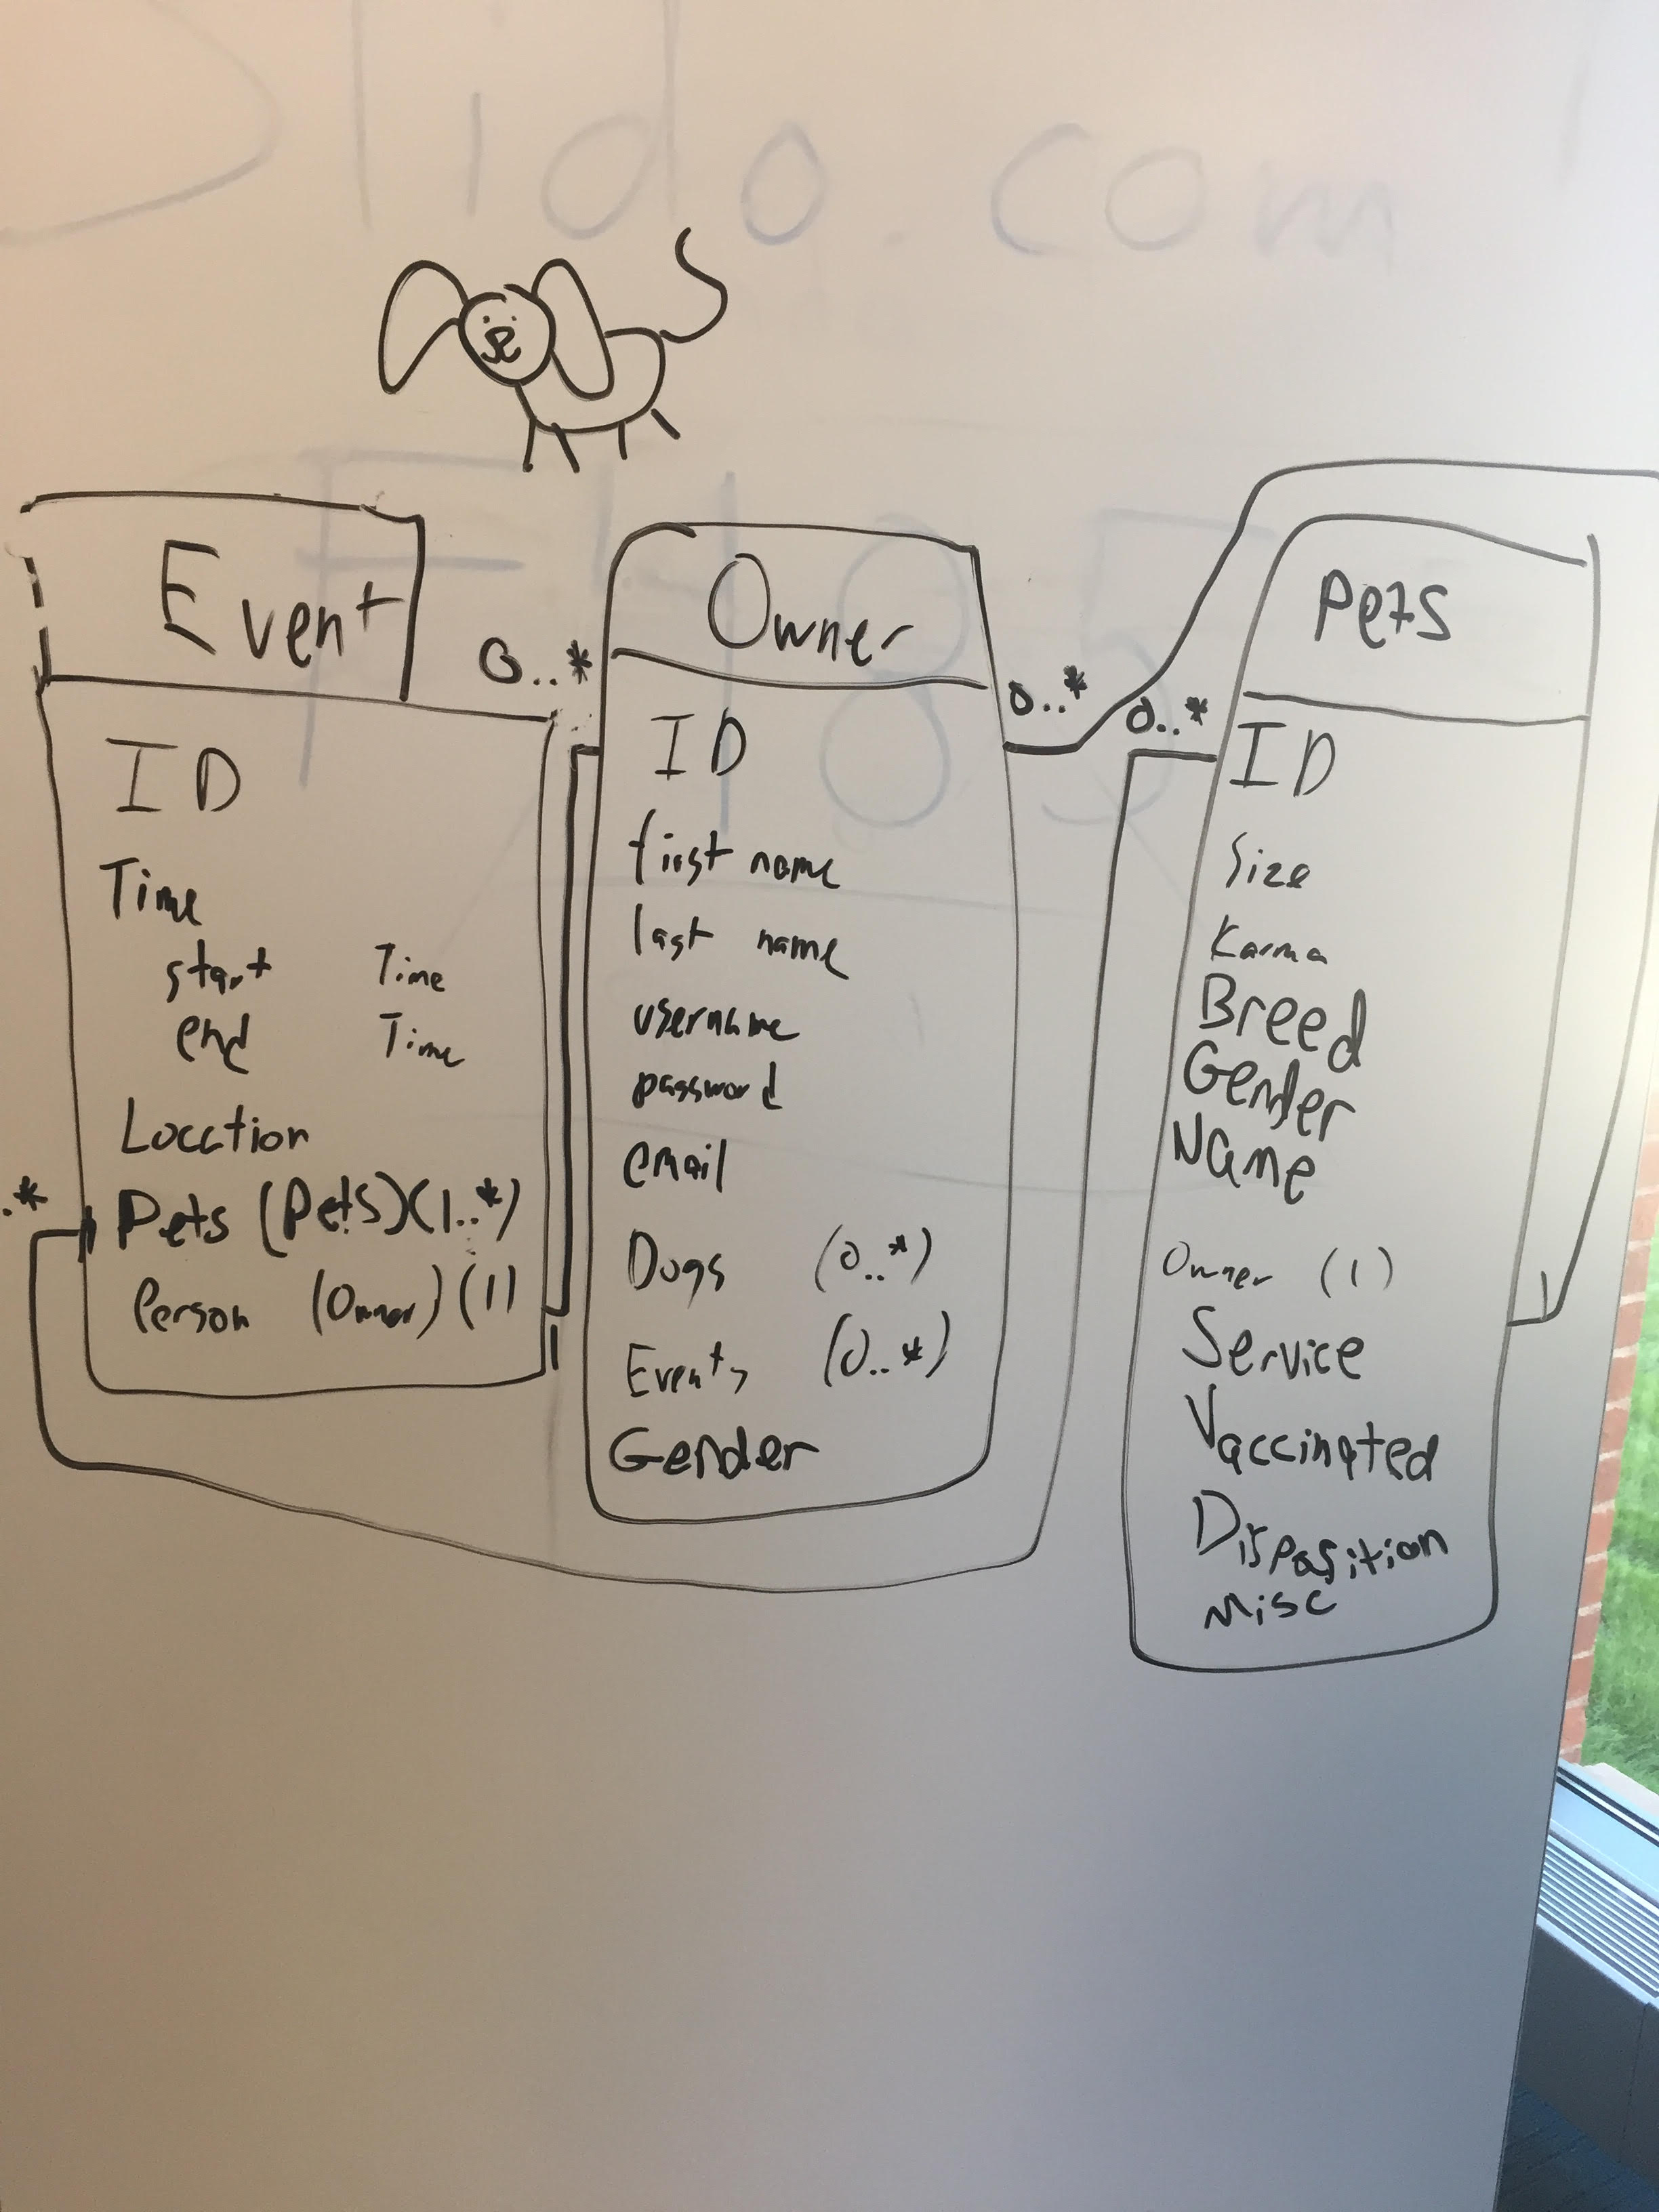 Slido.com
F485
Event
ID
Time
start Time
end Time
Location
Pets (Pets)(1..*)
Person (Owner)(1)
.*
1
0..*
Owner
ID
first name
last name
username
password
email
Dogs (0..*)
Events (0..*)
Gender
0..*
0..*
Pets
ID
Size
Karma
Breed
Gender
Name
Owner (1)
Service
Vaccinated
Disposition
Misc
1